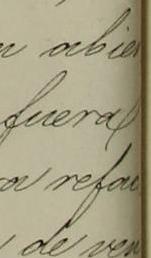 n abier
fuera
ra refac
de ven